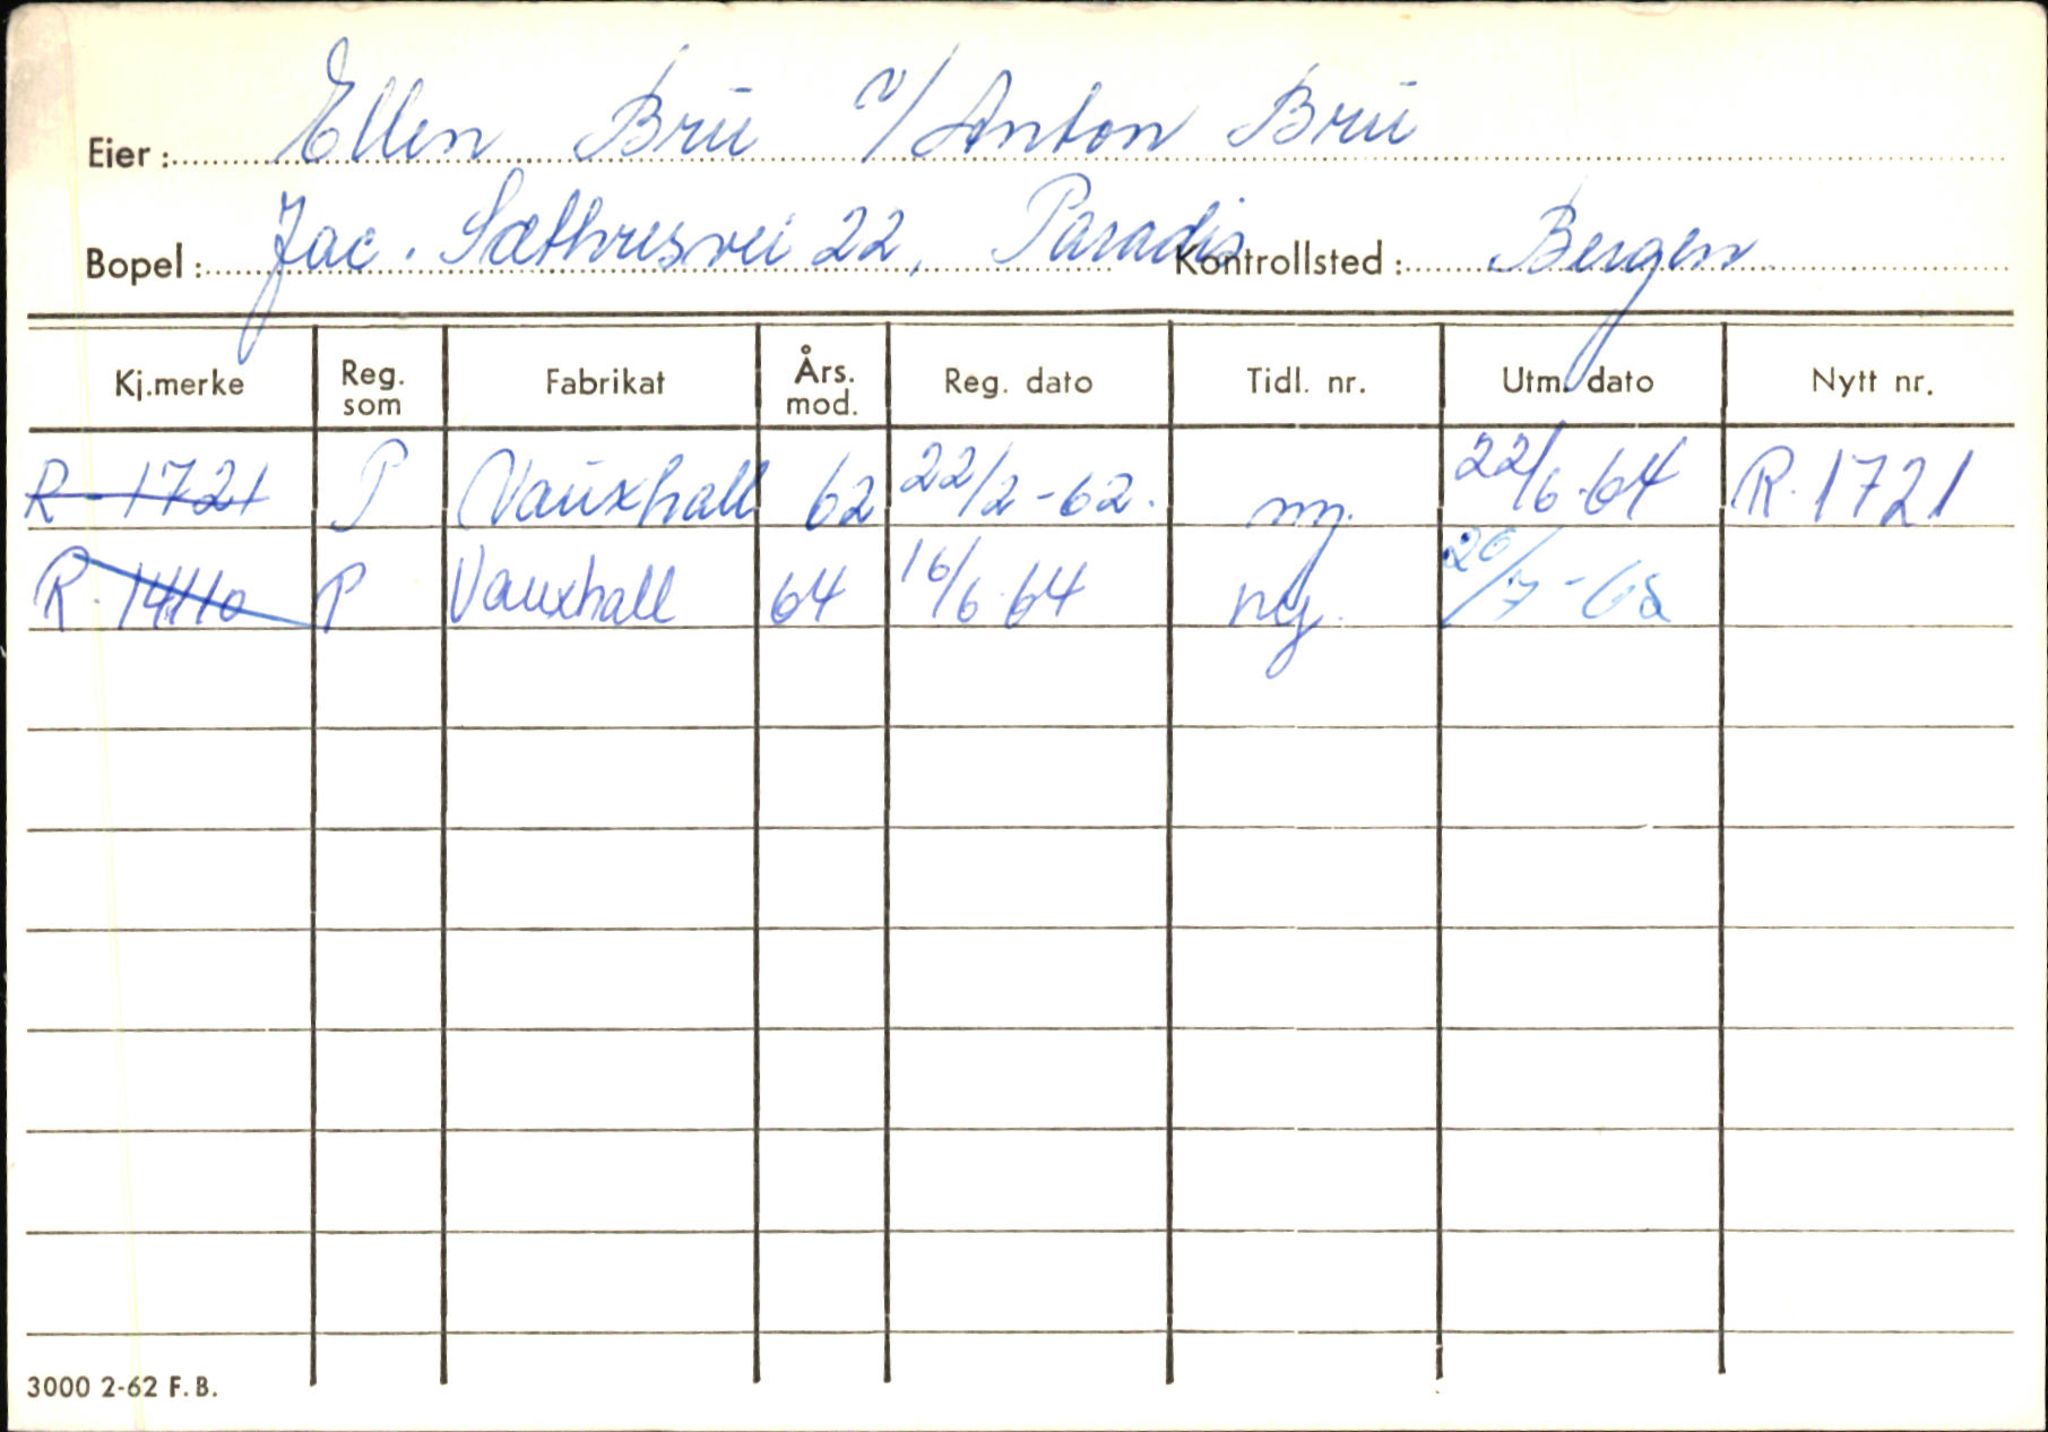 Eier: Ellen Brü v/Anton Brü
Bopel: Jac. Sæthresvei 22, Paradis Kontrollsted: Bergen
Kj.merke Reg. som Fabrikat Års. mod. Reg. dato Tidl. nr. Utm. dato Nytt nr.
R-1721 P Vauxhall 62 22/2-62. ny. 22/6-64 R.1721
R. P Vauxhall 64 16/6-64 ny.
3000 2-62 F.B.